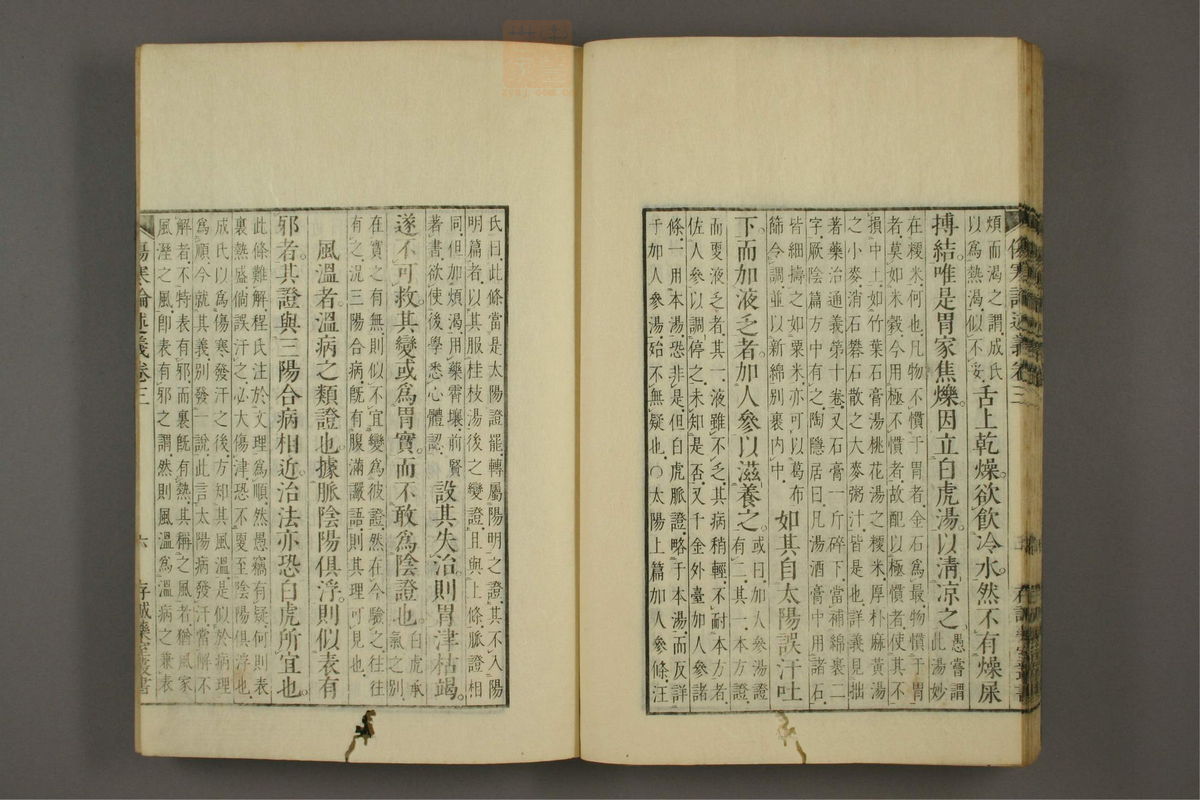 煩而渴之謂成氏
以為熱渴似不妥
舌上乾燥欲飲冷水然不有燥屎
搏結唯是胃家焦爍因立白虎湯以清涼之
愚嘗謂
此湯妙
在稉米何也凡物不慣于胃者金石為最物慣于胃
者莫如米穀今用極不慣者故配以極慣者使其不
損中土如竹葉石膏湯桃花湯之稉米厚朴麻黃湯
之小麥消石礬石散之大麥粥汁皆是也詳義見拙
著藥治通義第十卷又石膏一斤碎下當補綿裹二
字厥陰篇方中有之陶隱居曰凡湯酒膏中用諸石
皆細擣之如粟米亦可以葛布
篩令調並以新綿別裹內中
如其自太陽誤汗吐
下而加液乏者加人參以滋養之
或曰加人參湯證
有二其一本方證
而更液乏者其一液雖不乏其病稍輕不耐本方者
佐人參以調停之未知是否又千金外臺加人參諸
條一用本湯恐非是但白虎脈證略于本湯而反詳
于加人參湯殆不無疑也○太陽上篇加人參條汪
氏曰此條當是太陽證罷轉屬陽明之證其不入陽
明篇者以其服桂枝湯後之變證且與上條脈證相
同但加煩渴用藥霄壤前賢
著書欲使後學悉心體認
設其失治則胃津枯竭
遂不可救其變或為胃實而不敢為陰證也
白虎承
氣之別
在實之有無則似不宜變為彼證然在今驗之往往
有之況三陽合病既有腹滿讝語則其理可見也
風溫者溫病之類證也據脈陰陽俱浮則似表有
邪者其證與三陽合病相近治法亦恐白虎所宜也
此條難解程氏注於文理為順然愚竊有疑何則表
裏熱盛倘誤汗之必大傷津恐不更至陰陽俱浮也
成氏以為傷寒發汗之後方知其風溫是似於病理
為順今就其義別發一說此言太陽病發汗當解不
解者不特表有邪而裏既有熱其稱之風者猶風家
風溼之風即表有邪之謂然則風溫為溫病之兼表
傷寒論述義卷三
六
存誠藥室叢書